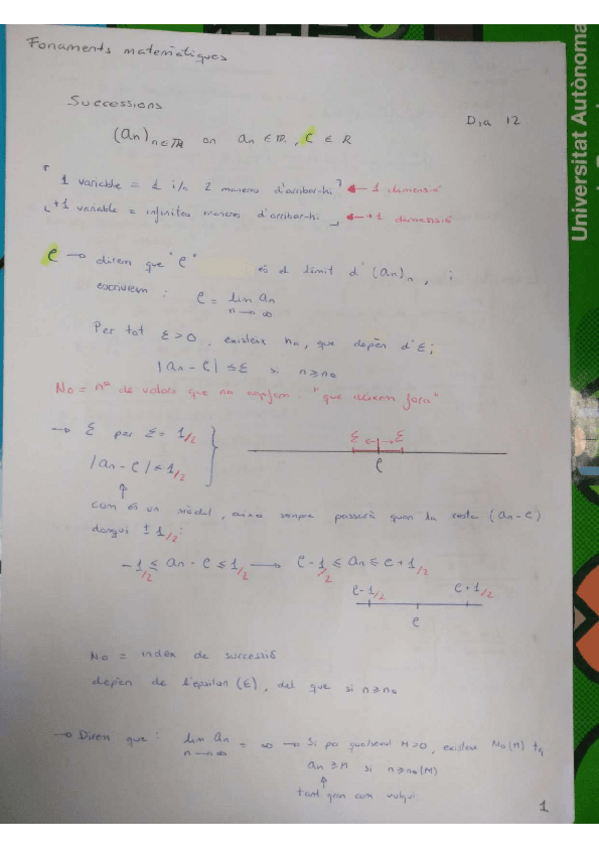 Fonaments matemàtiques
Successions
Dia 12
(an)n∈ℝ on an ∈ ℝ, ℓ ∈ R
1 variable = 1 i/o 2 maneres d'arribar-hi ← 1 dimensió
+1 variable = infinites maneres d'arribar-hi ← +1 dimensió
ℓ → direm que "ℓ" és el límit d' (an)n, i
escriurem : ℓ = lim an
n → ∞
Per tot ε>0, existeix no, que depèn d'ε;
|an - ℓ| ≤ ε si n ≥ no
No = nº de valors que no agafem. "que deixem fora"
→ ε per ε = 1/2
ε ← → ε
|an - ℓ| ≤ 1/2
ℓ
com és un mòdul, això sempre passarà quan la resta (an - ℓ)
dongui ± 1/2:
-1/2 ≤ an - ℓ ≤ 1/2 → ℓ - 1/2 ≤ an ≤ ℓ + 1/2
ℓ - 1/2 ℓ + 1/2
ℓ
No = índex de successió
depèn de l'èpsilon (ε), del que si n ≥ no
→ Direm que : lim an = ∞ → Si per qualsevol M>0, existeix No(M) tq
n → ∞
an ≥ M si n ≥ no(M)
tant gran com vulgui
1
Universitat Autònoma